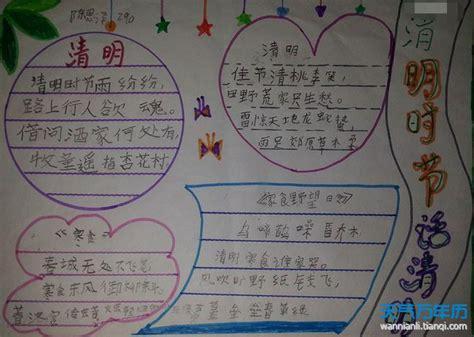 290
清明
清明时节雨纷纷,
路上行人欲 魂。
借问酒家何处有,
牧童遥指杏花村
清明
佳节清桃李
田野荒家只生愁。
雷惊天地龙蛇蛰,
雨足郊原草木
《寒食》
春城无处不飞
寒食东风御柳
汉宫传
食野望
乌啼鹊噪昏乔木
清明寒食谁家哭。
风吹旷野纸 飞,
垒垒春草
清明时节话清明
天气万年历
wannianli.tianqi.com